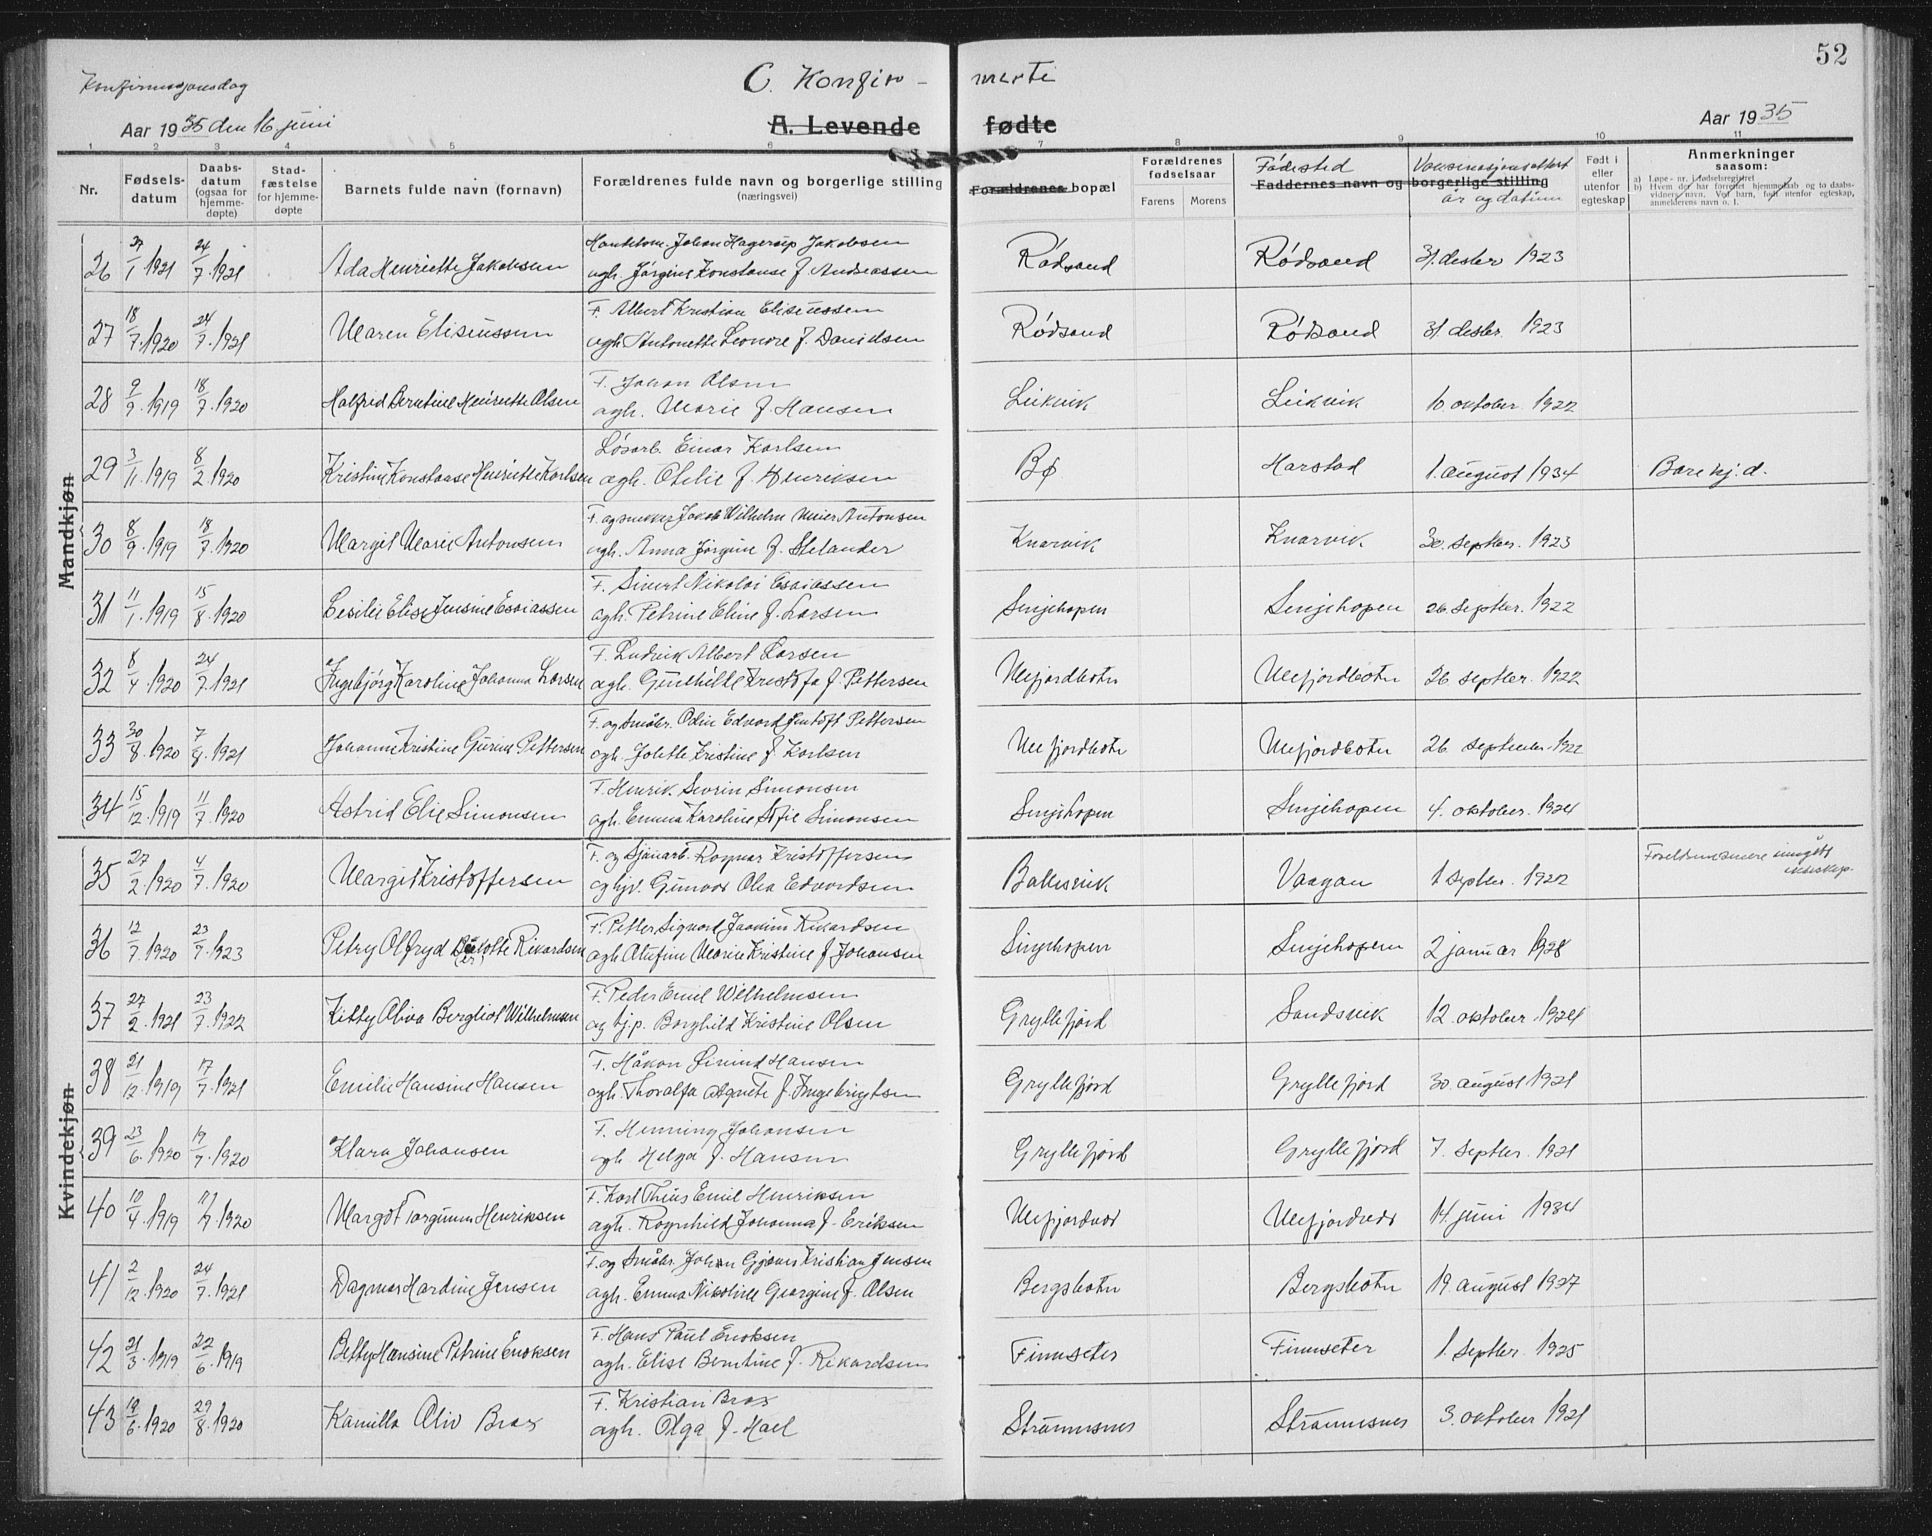 52
Konfirmasjonsdag
C. Konfir- merte
Aar 1935 den 16. juni
A. Levende fødte
Aar 1935
1 2 3 4 5 6 7 8 9 10 11
Nr. Fødsels-datum Daabs-datum (ogsaa for hjemme-døpte) Stad-fæstelse for hjemme-døpte Barnets fulde navn (fornavn) Forældrenes fulde navn og borgerlige stilling (næringsvei) Forældrenes bopæl Forældrenes fødselsaar Farens Morens Fødested Faddernes navn og borgerlige stilling Vaksinasjonsattest år og datum Født i eller utenfor egteskap Anmerkninger saasom:
a) Løpe-nr. i fødselsregistret
b) Hvem der har forrettet hjemmedaab og to daabs-vidners navn. Ved barn, født utenfor egteskap, anmelderens navn o. l.
Mandkjøn
26 27/1 1921 24/7 1921 Ada Henriette Jakobsen Handelsm. Johan Hagerup Jakobsen
ogh. Jørgine Konstanse f. Andreassen Rødsand Rødsand 31. desbr 1923
27 18/7 1920 24/7 1921 Maren Eliseussen F. Albert Kristian Eliseussen
ogh. Antonette Leonore f. Danielsen Rødsand Rødsand 31. desbr. 1923
28 9/9 1919 18/7 1920 Halfrid Berntine Henriette Olsen F. Johan Olsen
ogh. Marie f. Hansen Leikvik Leikvik 10 oktober 1922
29 3/11 1919 8/2 1920 Kristine Konstanse Henriette Karlsen Løsarb. Einar Karlsen
ogh. Otelie f. Henriksen Bø Harstad 1. august 1934 Bare hj.d.
30 8/9 1919 18/7 1920 Margit Marie Antonsen F. og snekker Jakob Wilhelm Meier Antonsen
ogh. Anna Jørgine f. Stelander Knarvik Knarvik 30. septber. 1923
31 11/1 1919 15/8 1920 Cesilie Elise Jensine Esaiassen F. Sivert Nikolai Esaiassen
ogh. Petrine Eline f. Larsen Senjehopen Senjehopen 26 septbr. 1922
32 8/4 1920 24/7 1921 Ingebjørg Karoline Johanna Larsen F. Ludvik Albert Larsen
ogh. Gunhilde Kristofa f. Pettersen Mefjordbotn Mefjordbotn 26 septbr. 1922
33 30/8 1920 7/8 1921 Johanne Kristine Gurine Pettersen F. og Småbr. Odin Edvard Pettersen
ogh. Jolette Kristine f. Karlsen Mefjordbotn Mefjordbotn 26 september 1922
34 15/12 1919 11/7 1920 Astrid Elie Simonsen F. Henrik Sevrin Simonsen
ogh. Emma Karoline Sofie Simonsen Senjehopen Senjehopen 4. oktober. 1924
Kvindekjøn
35 27/2 1920 4/7 1920 Margit Kristoffersen F. og Sjauarb. Ragnar Kristoffersen
og hjv. Gunvor Olea Edvardsen Ballesvik Vaagan 1 septbr. 1922 Foreldrene senere inngått ekteskap.
36 12/7 1920 23/7 1923 Petry Olfryd Rikardsen F. Petter Sigvart Joakim Rikardsen
ogh Marie Kristine f Johansen Senjehopen Senjehopen 2 januar 1928
37 27/2 1921 23/7 1922 Kitty Oliva Bergliot Wilhelmsen F. Peder Emil Wilhelmsen
og tj.p. Borghild Kristine Olsen Gryllefjord Sandsvik 12. oktober. 1924
38 21/12 1919 17/7 1921 Emilie Hansine Hansen F. Håkon Øivind Hansen
ogh. Thoralfa Agnete f. Ingebrigtsen Gryllefjord Gryllefjord 30 august 1921
39 23/6 1920 19/7 1920 Klara Johansen F. Henning Johansen
ogh. Helga f. Hansen Gryllefjord Gryllefjord 7 septbr. 1921
40 10/4 1919 11/7 1920 Margot Torgunn Henriksen F. Karl Theus Emil Henriksen
ogh. Ragnhild Johanna f. Eriksen Mefjordvær Mefjordvær 14. juni 1934
41 2/12 1920 24/7 1921 Dagmar Hardine Jensen F. og Småbr. Johan Gjæver Kristian Jensen
ogh. Emma Nikoline Georgine f. Olsen Bergsbotn Bergsbotn 19. august 1927
42 21/3 1919 22/6 1919 Betty Hansine Petrine Enoksen F. Hans Paul Enoksen
ogh. Elise Berntine f. Rikardsen Finnseter Finnseter 1. septbr. 1925
43 19/6 1920 29/8 1920 Kamilla Oliv Brox F. Kristian Brox
ogh. Olga f. Hael Strømmsnes Strømmsnes 3. oktober 1921